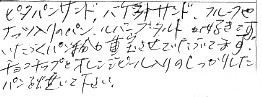 ピタパンサンド、バゲットサンド、フルーツや
ナッツ入りのパン、ルバーブタルトが好きです。
いただくパン粉も重宝させていただいてます。
チョコチップとオレンジピール入りのしっかりした
パンを焼いて下さい。